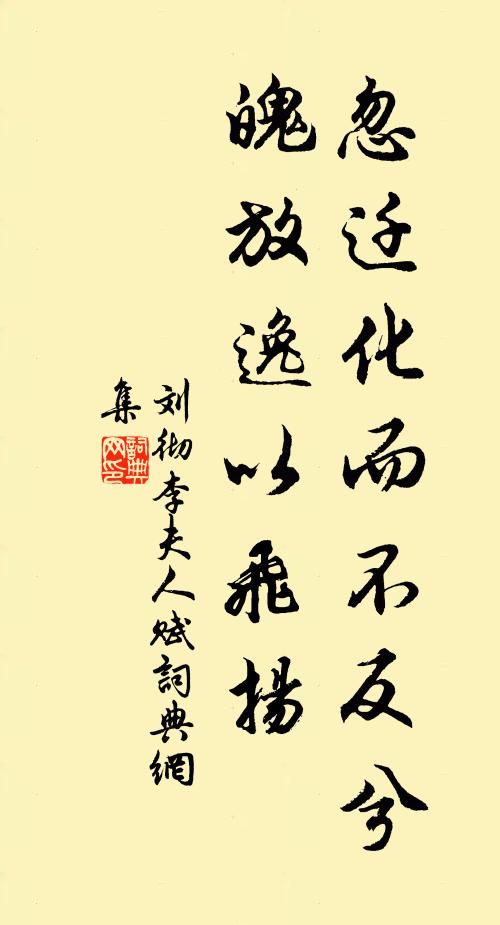 忽迁化而不反兮
魄放逸以飛揚
刘彻李夫人赋詞典網
集
詞典
网印